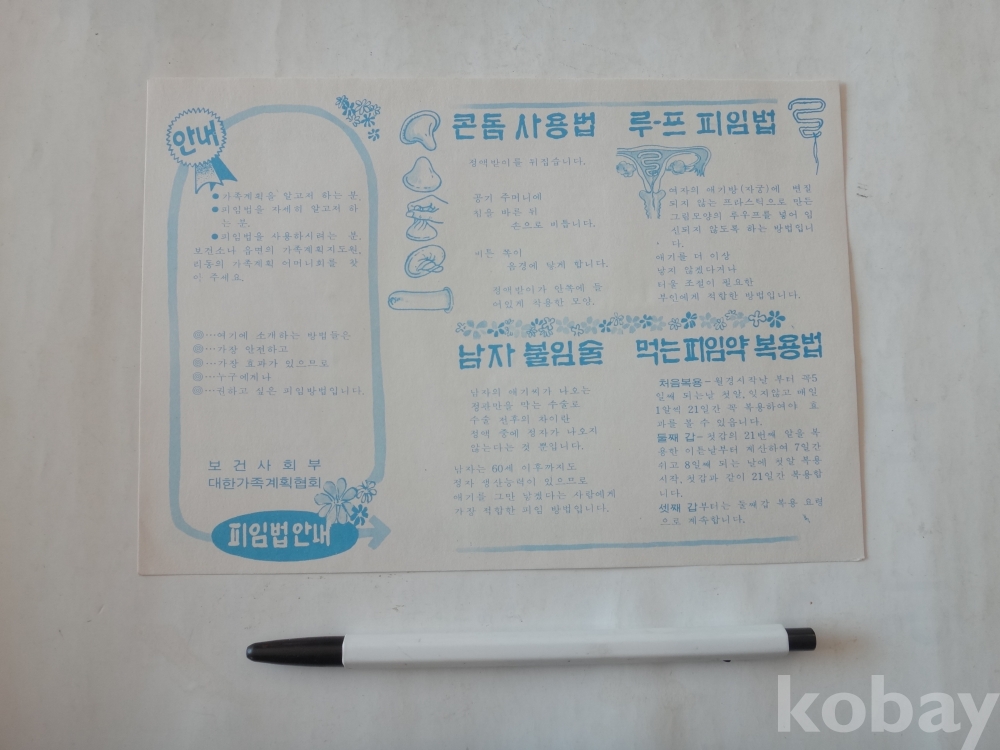 안내
●가족계획을 알고저 하는 분
●피임법을 자세히 알고저 하
는 분.
●피임법을 사용하시려는 분.
보건소나 읍면의 가족계획지도원,
리동의 가족계획 어머니회를 찾
아 주세요.
…여기에 소개하는 방법들은
…가장 안전하고
…가장 효과가 있으므로
…누구에게나
…권하고 싶은 피임방법입니다.
보건사회부
대한가족계획협회
피임법안내
콘돔 사용법
정액받이를 뒤집습니다.
공기 주머니에
침을 바른 뒤
손으로 비틉니다.
비튼 쪽이
음경에 닿게 합니다.
정액받이가 안쪽에 들
어있게 착용한 모양.
루-프 피임법
여자의 애기방(자궁)에 변질
되지 않는 프라스틱으로 만든
그림모양의 루우프를 넣어 임
신되지 않도록 하는 방법입니
다.
애기를 더 이상
낳지 않겠다거나
터울 조절이 필요한
부인에게 적합한 방법입니다.
남자 불임술
남자의 애기씨가 나오는
정관만을 막는 수술로
수술 전후의 차이란
정액 중에 정자가 나오지
않는다는 것 뿐입니다.
남자는 60세 이후까지도
정자 생산능력이 있으므로
애기를 그만 낳겠다는 사람에게
가장 적합한 피임 방법입니다.
먹는 피임약 복용법
처음복용- 월경시작날 부터 꼭5
일째 되는날 첫알, 잊지않고 매일
1알씩 21일간 꼭 복용하여야 효
과를 볼 수 있읍니다.
둘째 갑- 첫갑의 21번째 알을 복
용한 이튿날부터 계산하여 7일간
쉬고 8일째 되는 날에 첫알 복용
시작, 첫갑과 같이 21일간 복용합
니다.
셋째 갑부터는 둘째갑 복용 요령
으로 계속합니다.
kobay